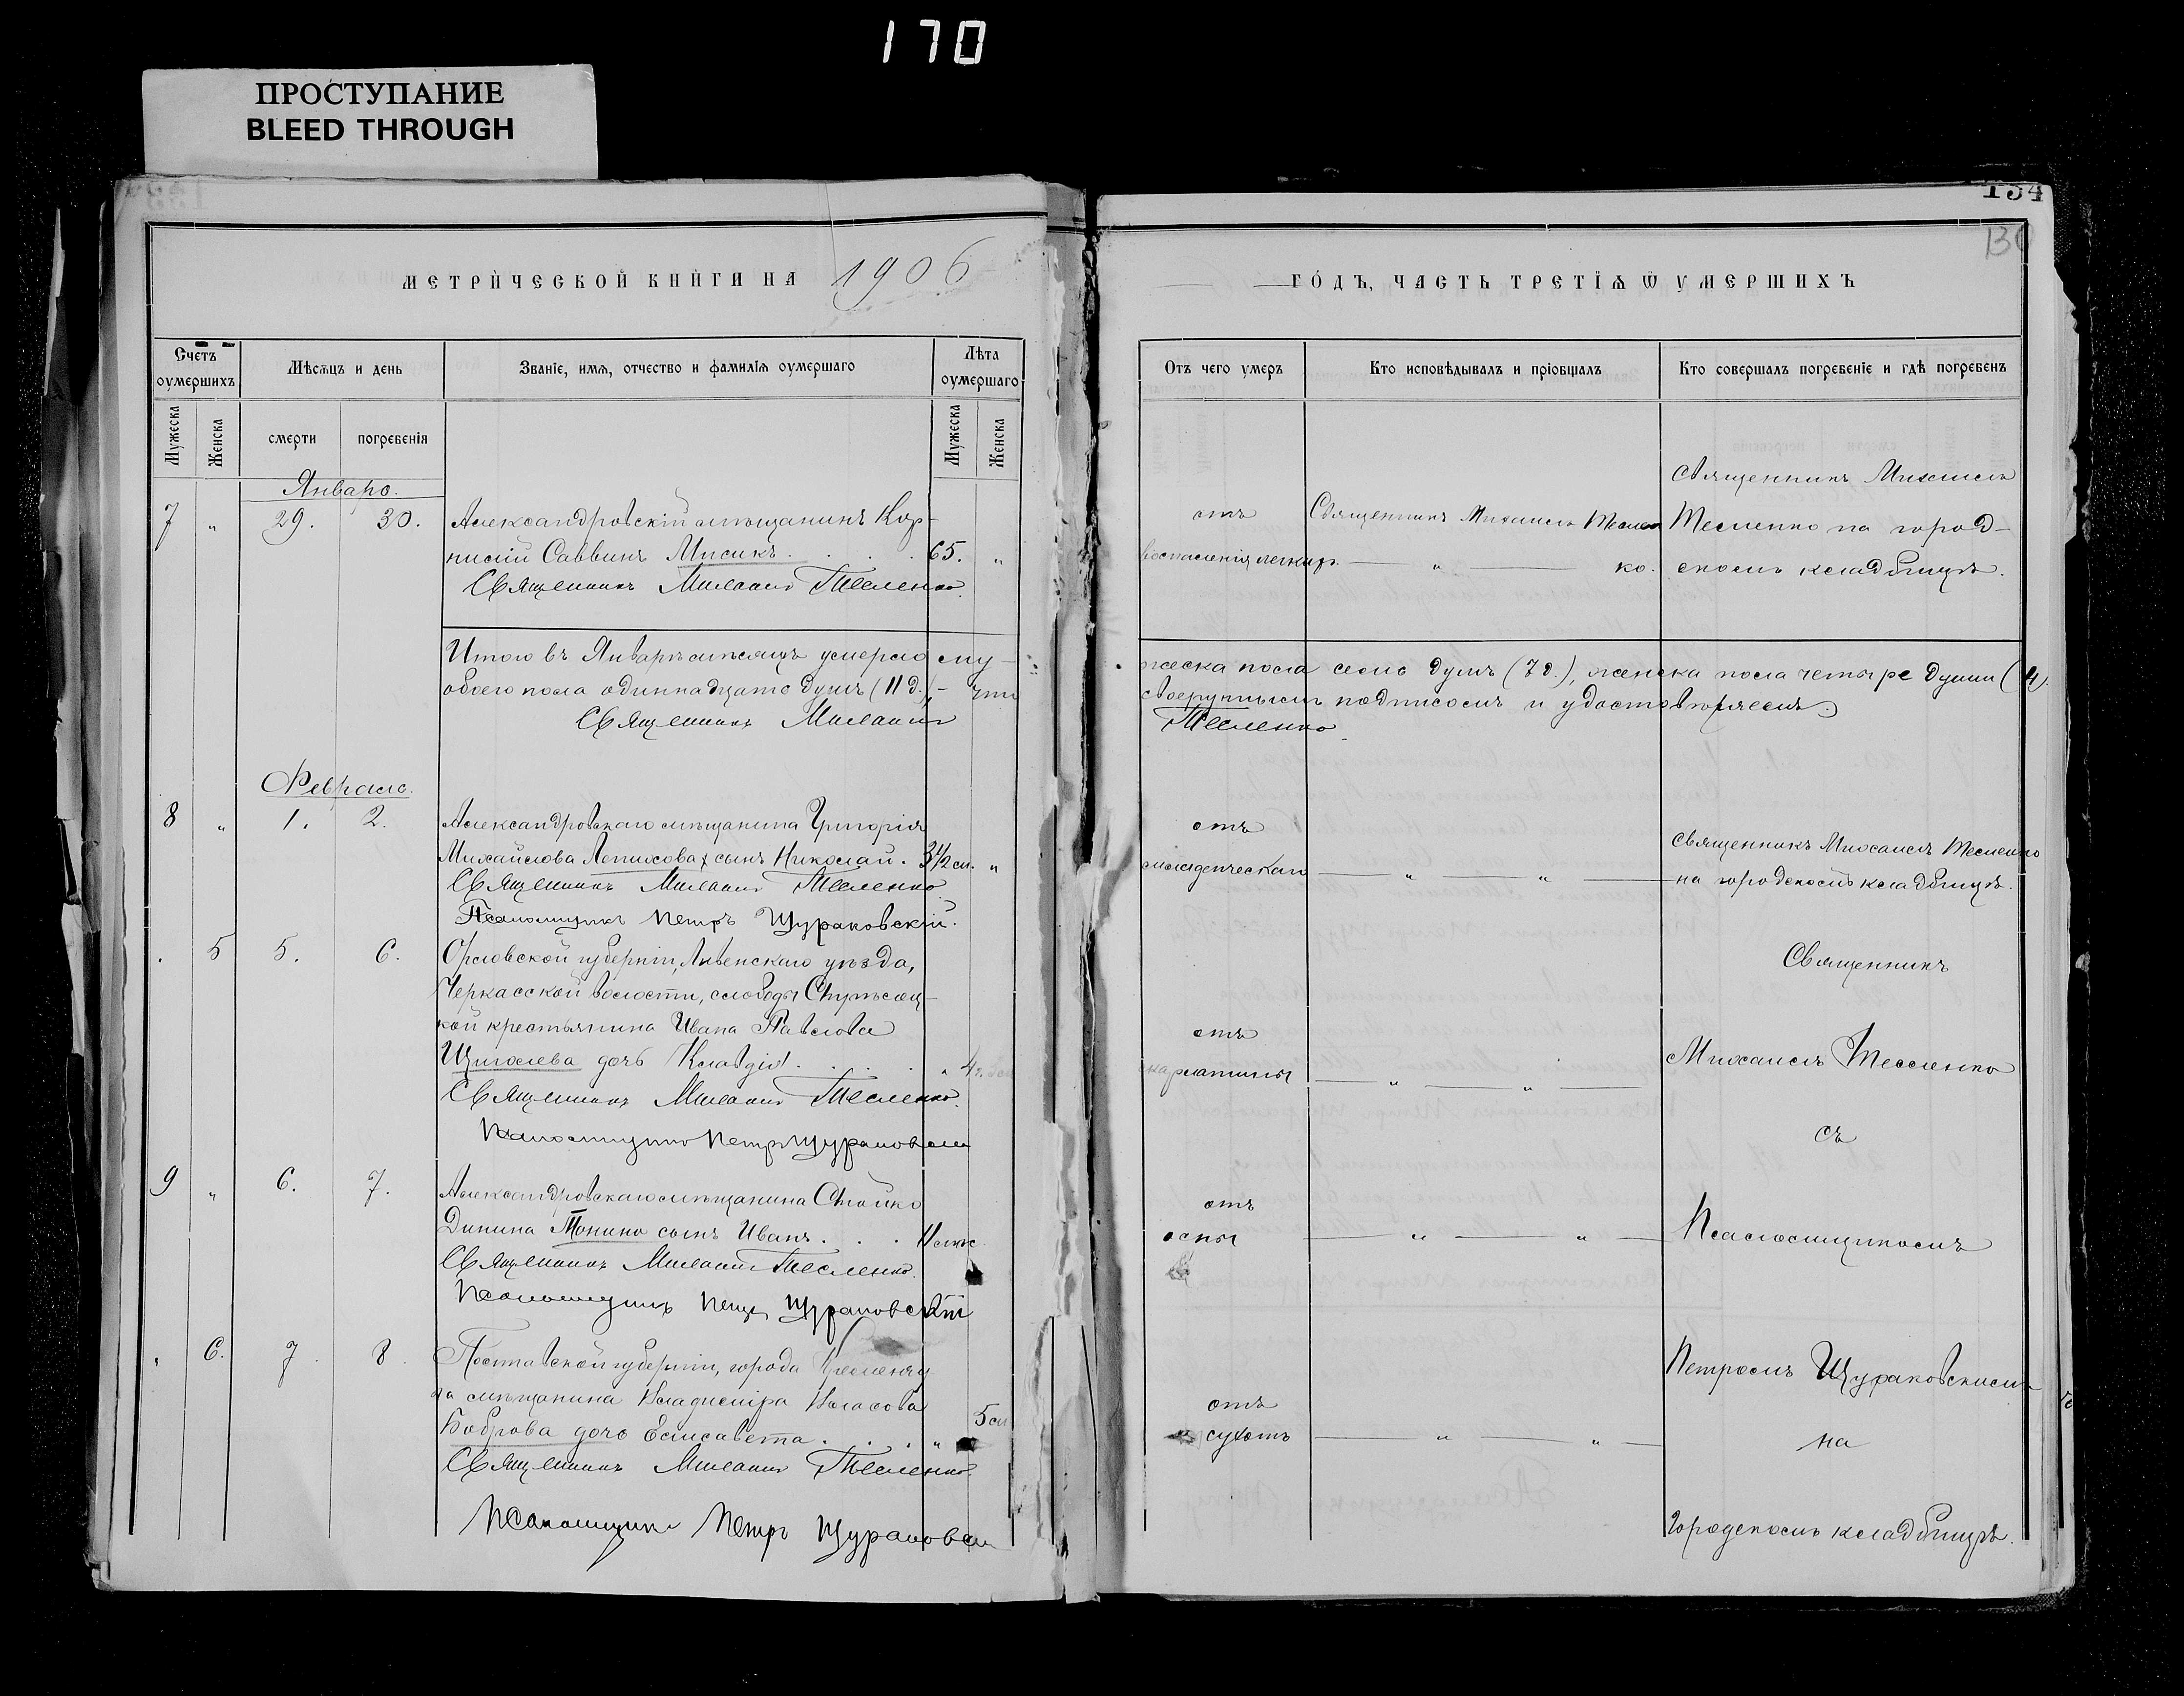 170
ПРОСТУПАНИЕ
BLEED THROUGH
134
130
МЕТРИЧЕСКОЙ КНИГИ НА 1906
ГОДЪ, ЧАСТЬ ТРЕТІѦ Ѿ УМЕРШИХЪ
Счетъ оумершихъ
Мѣсѧцъ и день
Званіе, имѧ, отчество и фамиліѧ оумершаго
Лѣта оумершаго
Отъ чего умеръ
Кто исповѣдывалъ и пріобщалъ
Кто совершалъ погребеніе и гдѣ погребенъ
Мужеска
Женска
смерти
погребенія
Мужеска
Женска
Январь.
7 " 29. 30. Александровскій мѣщанинъ Кор-
нилій Саввинъ Мисикъ . . . . 65. "
Священникъ Михаилъ Тесленко.
отъ
воспаленія легкихъ.
Священникъ Михаилъ Теслен
— " — ко.
Священникъ Михаилъ
Тесленко на город-
скомъ кладбищѣ.
Итого въ Январѣ мѣсяцѣ умерло му-
жеска пола семь душъ (7 д.), женска пола четыре души (4
обоего пола одиннадцать душъ (11 д.), - что
своеручнымъ подписомъ и удостовѣряемъ.
Священникъ Михаилъ
Тесленко
Февраль.
8 " 1. 2. Александровскаго мѣщанина Григорія
Михайлова сынъ Николай. 3 1/2 м. "
Священникъ Михаилъ Тесленко
Псаломщикъ Петръ Щураковскій.
отъ
младенческой — " — " —
Священникъ Михаилъ Тесленко
на городскомъ кладбищѣ.
. 5 5. 6. Орловской губерніи, Ливенскаго уѣзда,
Черкасской волости, слободы Стрѣлец-
кой крестьянина Ивана Павлова
Щиголева дочь Клавдія . . . . . " 4
Священникъ Михаилъ Тесленко.
Псаломщикъ Петръ Щураковскій
отъ
скарлатины — " — " —
Священникъ
Михаилъ Тесленко
съ
9 " 6. 7. Александровскаго мѣщанина Стойко
Динина Тонино сынъ Иванъ . . . 11 мѣс.
Священникъ Михаилъ Тесленко.
Псаломщикъ Петръ Щураковскій
отъ
оспы — " — " —
Псаломщикомъ
" 6. 7. 8. Полтавской губерніи, города Кременчу
га мѣщанина Владиміра Власова
Боброва дочь Елисавета . . . . " 5 м
Священникъ Михаилъ Тесленко.
Псаломщикъ Петръ Щураковскій
отъ
сухотъ — " — " —
Петромъ Щураковскимъ
на
городскомъ кладбищѣ.